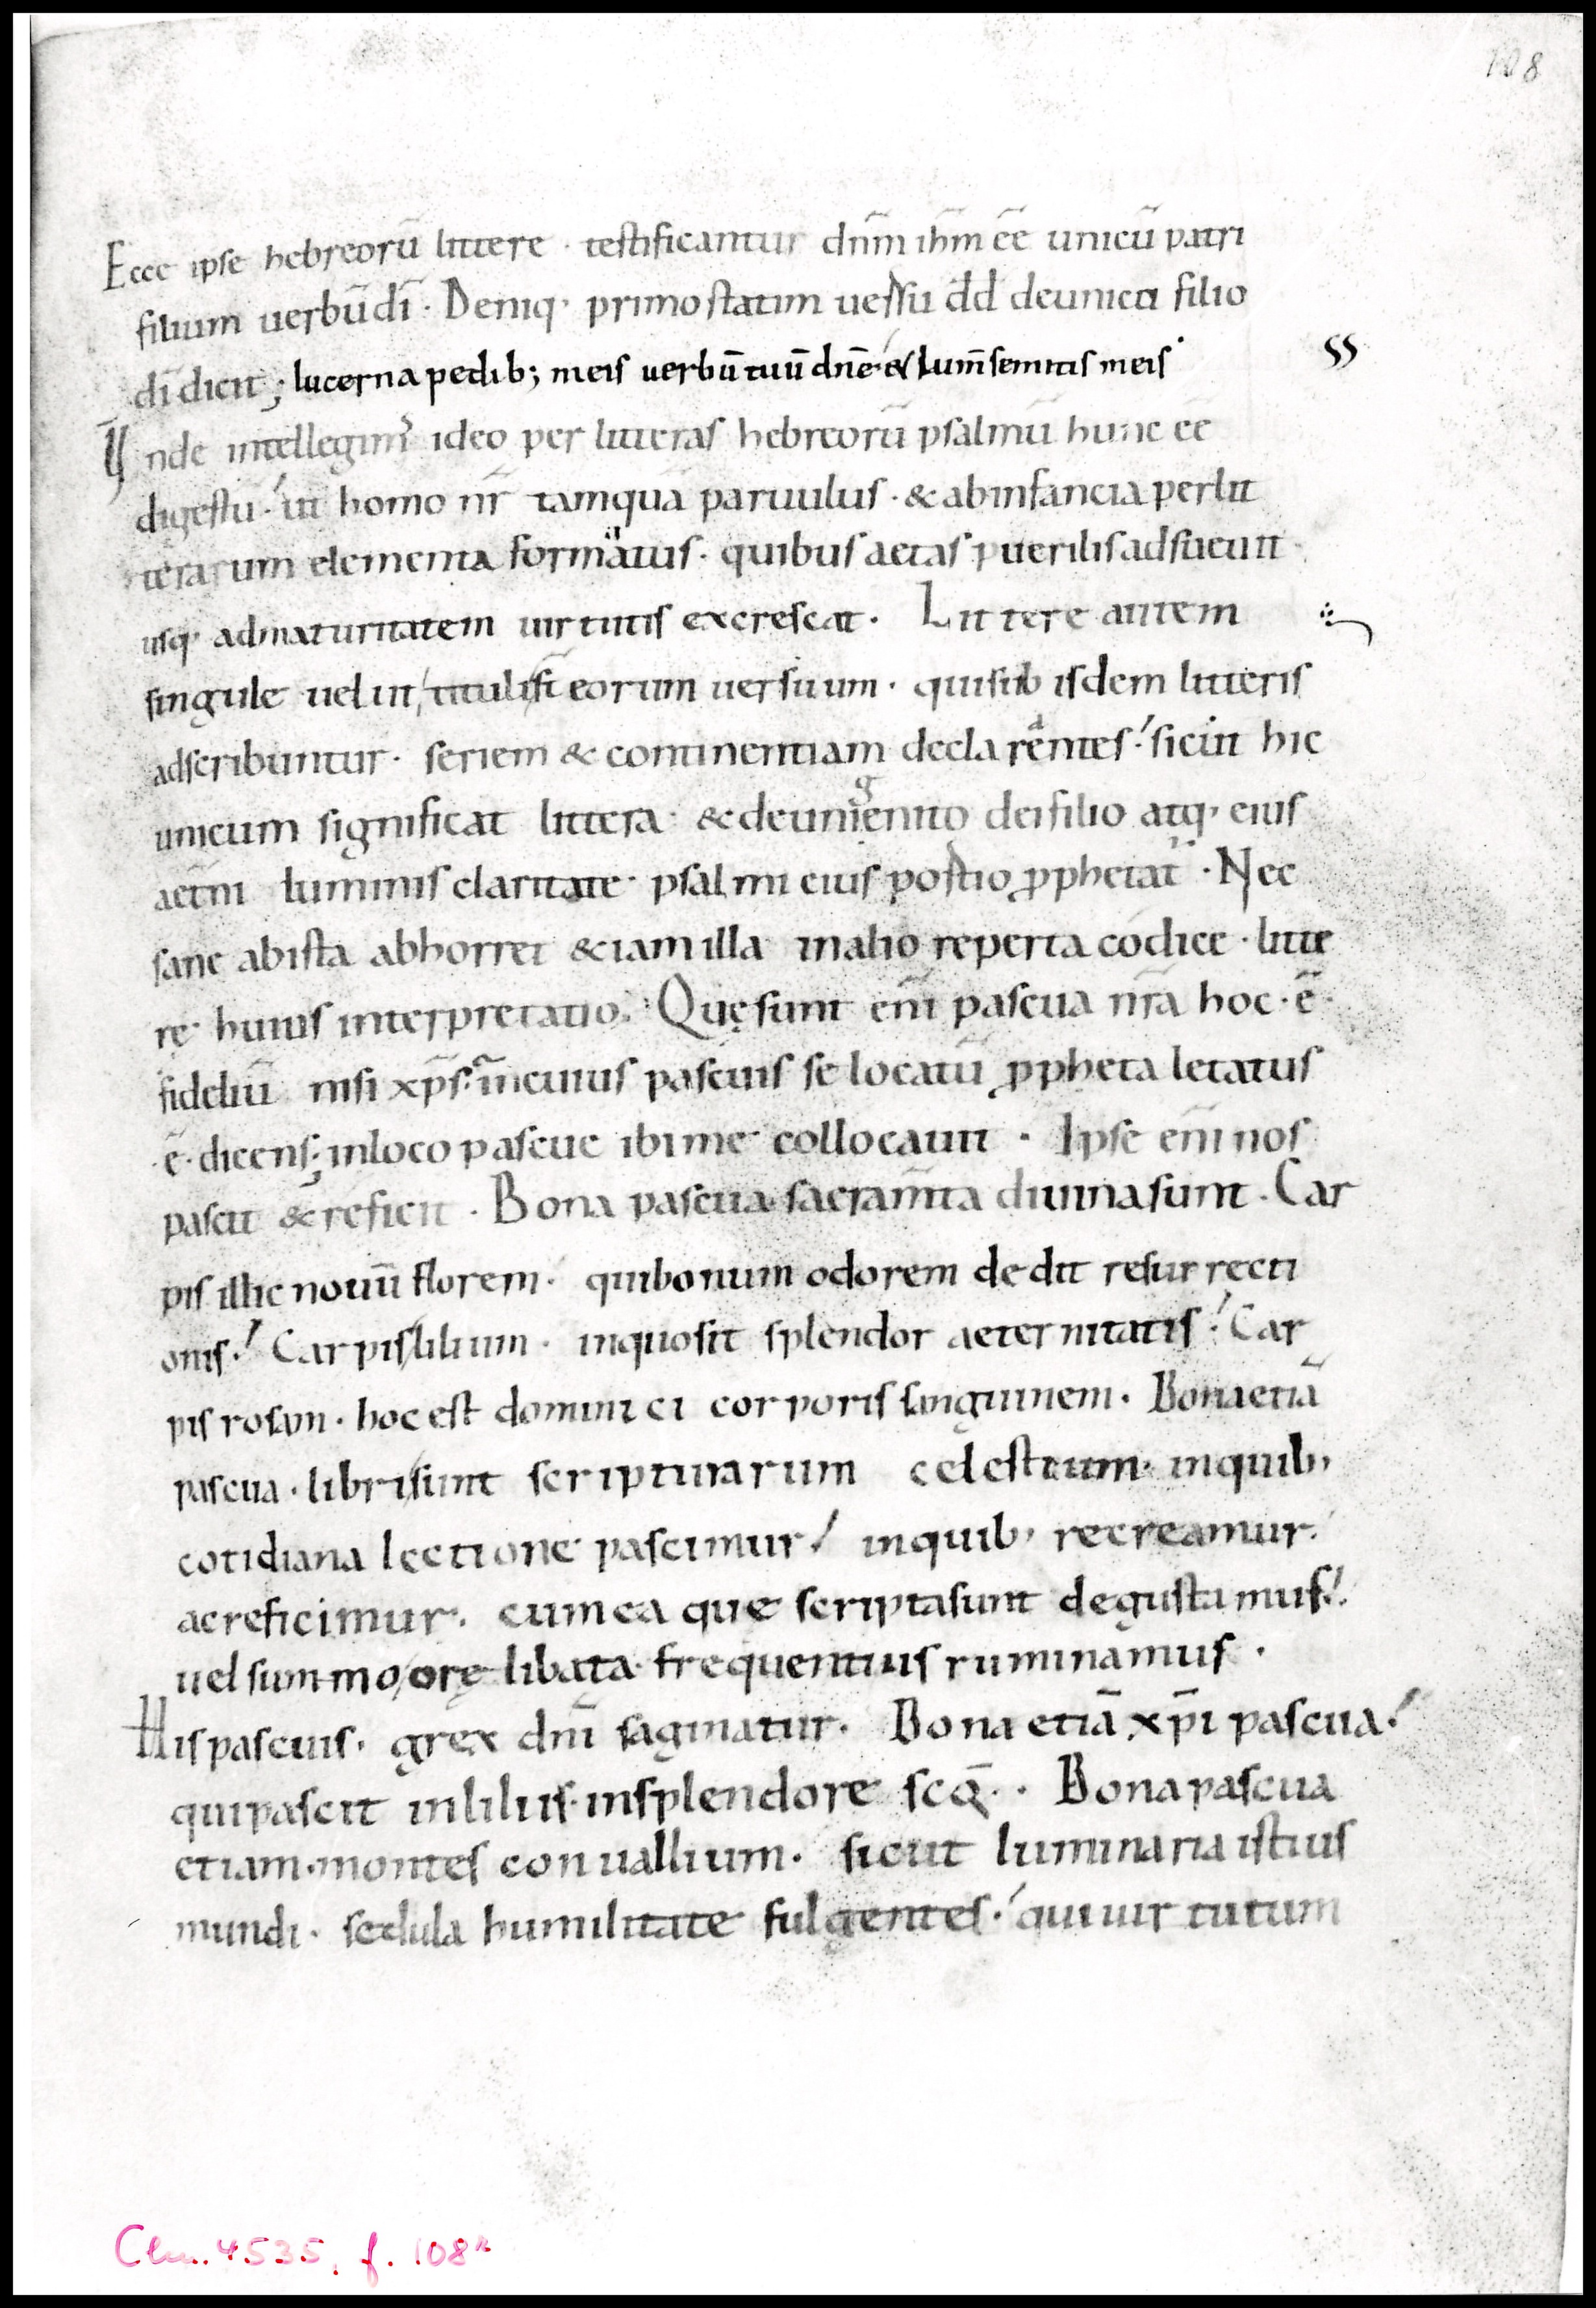 108
Ecce ipse hebreorū littere · testificantur dn̄m ihm̄ ēē unicū patri
filium uerbū dī · Deniq· primo statim uersu dd̄ de unico filio
dī dicit; lucerna pedib; meis uerbū tuū dn̄e· & lum̄ semitis meis
Unde intellegim᾽ ideo per litteras hebreorū psalmū hunc ēē
digestū· ut homo nr̄ tamquā paruulus · & ab infancia per lit
terarum elementa formatus · quibus aetas puerilis adsueuit
usq· ad maturitatem uirtutis excrescat · Littere autem
singule uelut tituli s̄ eorum uersuum · qui sub isdem litteris
adscribuntur · seriem & continentiam declarentes· sicut hic
unicum significat littera · & de unigenito dei filio atq· eius
aet̄ni luminis claritate· psalmi eius postio pphetat᾽ · Nec
sane ab ista abhorret & iam illa in alio reperta codice · litte
rę· huius interpretatio · Quę sunt eni̅ pascua nr̄a hoc · ē·
fideliū nisi xp̄s· in cuius pascuis se locatū ppheta letatus
· ē · dicens; in loco pascue ibi me collocauit · Ipse eni̅ nos
pascit & reficit · Bona pascua sacram̄ta diuina sunt · Car
pis illic nouū florem · qui bonum odorem dedit resurrecti
onis· Carpis lilium · in quo sit splendor aeternitatis· Car
pis rosam · hoc est dominici corporis sanguinem · Bona etiā
pascua · libri sunt scripturarum celestium· in quib·
cotidiana lectione pascimur· in quib· recreamur·
ac reficimur· cum ea que scripta sunt degustamus·
uel summo orę libata· frequentius ruminamus ·
His pascuis · grex dn̄i saginatur · Bona etiā xp̄i pascua·
qui pascit in liliis· in splendore scōꝝ · Bona pascua
etiam · montes conuallium · sicut luminaria istius
mundi · sedula humilitate fulgentes· qui uirtutum
Clm. 4535, f. 108r